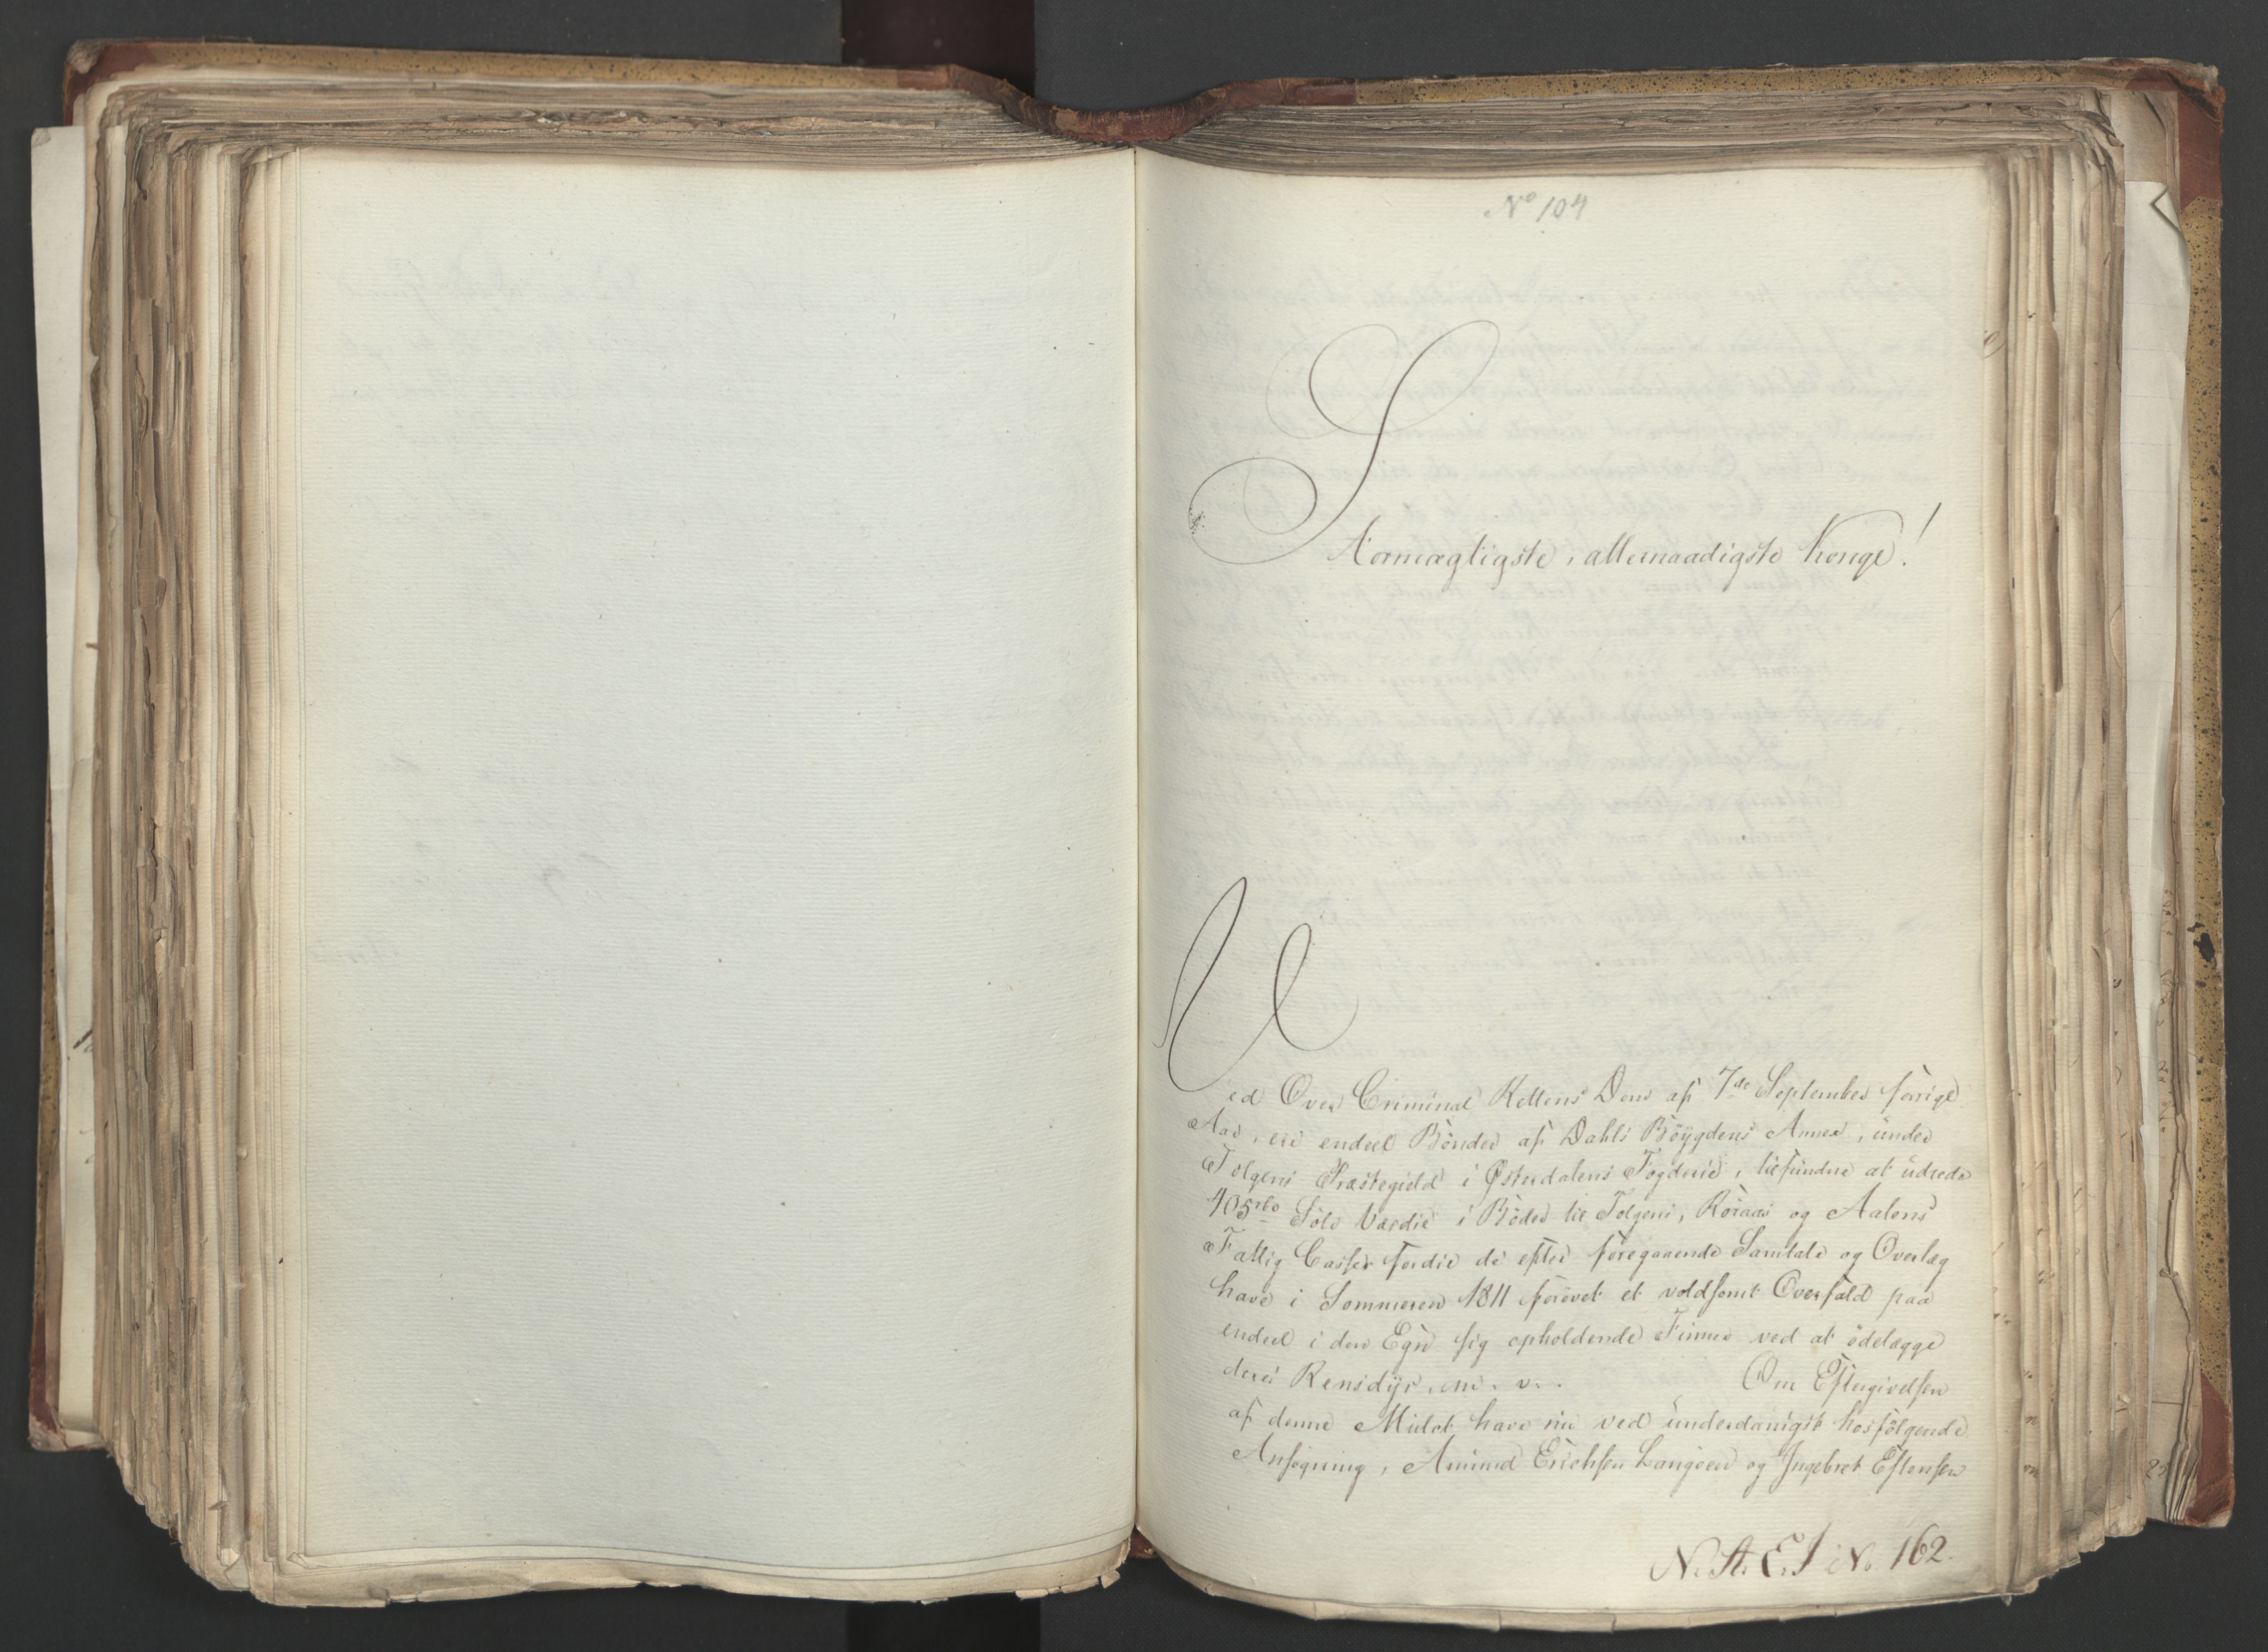 No 104
Stormægtigste, allernaadigste Konge!
Ved Over Criminal Rettens Dom af 7de September forrige
Aar, ere endeel Bønder af Dahls Böygdens Annex, under
Tolgens Præstegield i Østerdalens Fogderie, tilfundne at udrede
405 rbd Sölv Værdie i Böder til Tolgens, Röraas og Aalens
Fattig Casser fordie de efter foregaaende Samtale og Overlæg
have i Sommeren 1811 forövet et voldsomt Overfald paa
endeel i den Egn sig opholdende Finner ved at ödelægge
deres Rensdyr, m. v. . Om Eftergivelsen
af denne Mulct have nu ved underdanigst hosfölgende
Ansögning, Amund Erichsen Langøen og Ingebret Estensen
N. St. E. J No. 162.